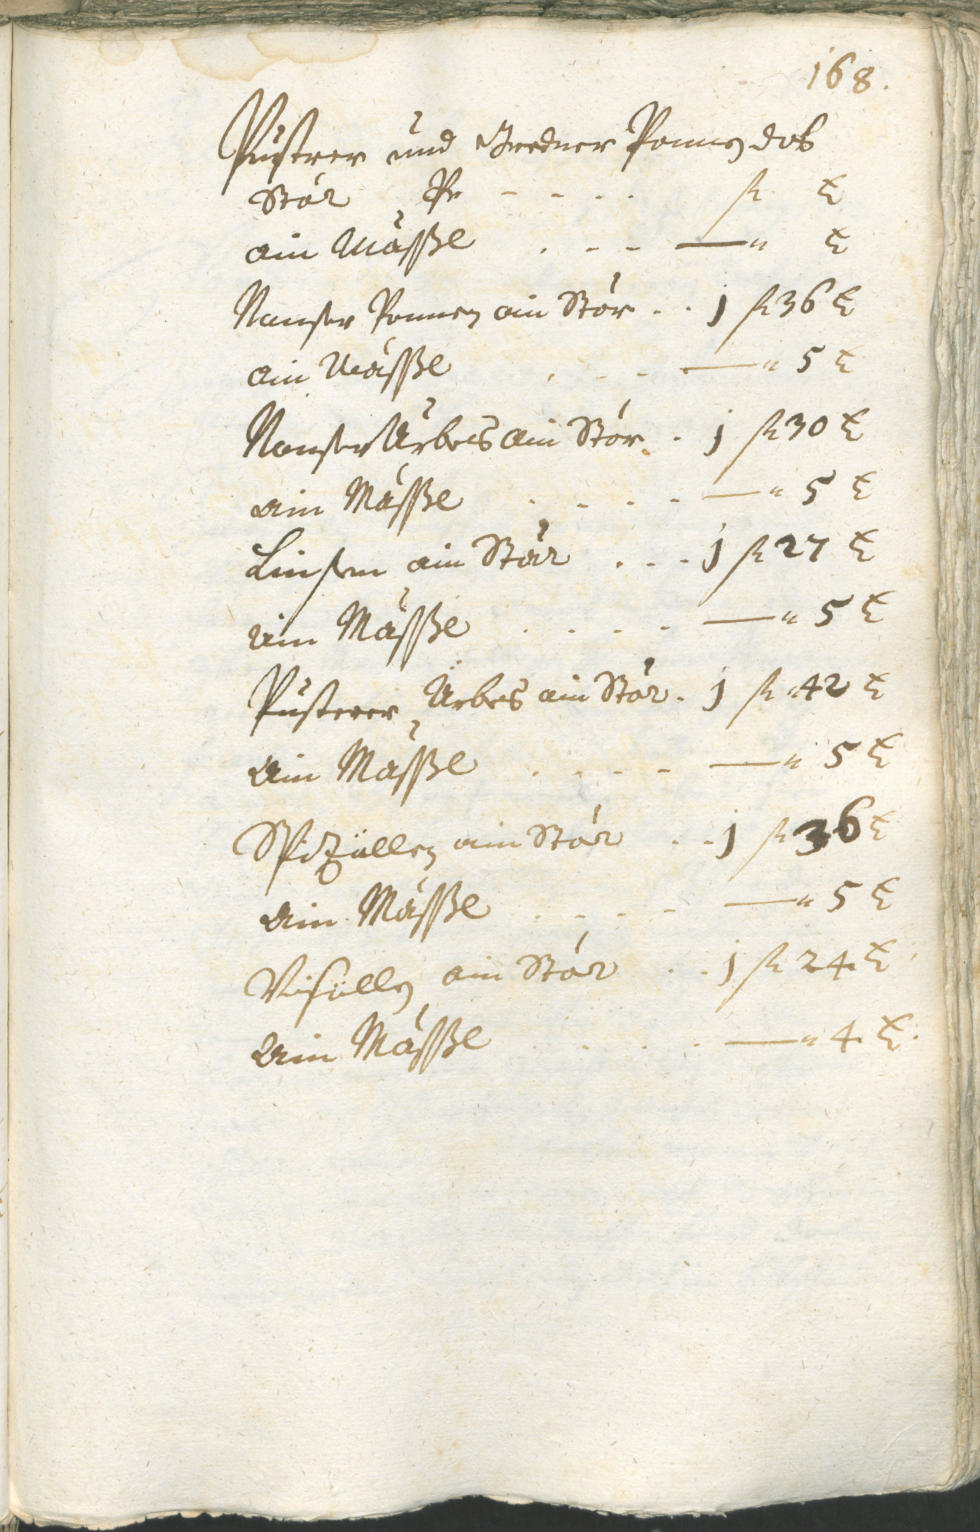 168.
Pustrer und Gredner Ponnen das
Stär Pr - - - - fl x
ain Mässle . - - — " x
Nonser Ponnen ain Stär . . j fl 36 x
ain Mässle . - - — " 5 x
Nonser Ärbes ain Stär . j fl 30 x
ain Mässle . - - - — " 5 x
Linsen ain Stär . . - j fl 27 x
ain Mässle . . . . — " 5 x
Pusterer Ärbes ain Stär . j fl 42 x
Ain Mässle . . . - — " 5 x
ain Stär . . j fl 36 x
Ain Mässle . . . - — " 5 x
ain Stär . . j fl 24 x
Ain Mässle . . . — " 4 x.